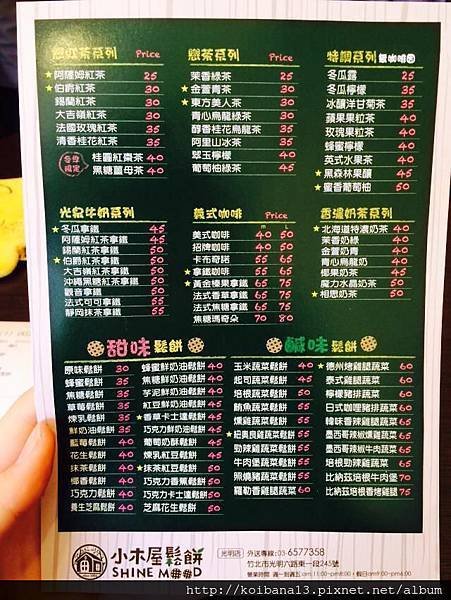 戀紅茶系列 Price
★阿薩姆紅茶 25
★伯爵紅茶 30
錫蘭紅茶 30
大吉嶺紅茶 30
法國玫瑰紅茶 35
清香桂花紅茶 35
冬季限定
桂圓紅棗茶 40
黑糖薑母茶 40
戀茶系列 Price
茉香綠茶 25
★金萱青茶 30
★東方美人茶 30
青心烏龍綠茶 30
醇香桂花烏龍茶 35
阿里山冰茶 35
翠玉檸檬 40
葡萄柚綠茶 50
特調系列 無咖啡因
冬瓜露 25
冬瓜檸檬 35
冰釀洋甘菊茶 35
蘋果果粒茶 40
玫瑰果粒茶 40
蜂蜜檸檬 40
英式水果茶 40
★黑森林果釀 45
★蜜香葡萄柚 50
光泉牛奶系列
★冬瓜拿鐵 45
阿薩姆紅茶拿鐵 45
錫蘭紅茶拿鐵 50
★伯爵紅茶拿鐵 50
大吉嶺紅茶拿鐵 50
沖繩黑糖紅茶拿鐵 50
觀音拿鐵 50
法式可可拿鐵 55
靜岡抹茶拿鐵 55
義式咖啡 Price
美式咖啡 40 50
招牌咖啡 40 50
卡布奇諾 55 65
★拿鐵咖啡 55 65
★黃金榛果拿鐵 65 75
法式香草拿鐵 65 75
法式焦糖拿鐵 65 75
焦糖瑪奇朵 70 80
香濃奶茶系列
★北海道特濃奶茶 40
茉香奶綠 40
金萱奶青 40
青心烏龍奶 40
椰果奶茶 45
魔力水晶奶茶 50
★相思奶茶 50
甜味鬆餅
原味鬆餅 30
蜂蜜鬆餅 35
焦糖鬆餅 35
草莓鬆餅 35
煉乳鬆餅 35
鮮奶油鬆餅 35
藍莓鬆餅 40
花生鬆餅 40
抹茶鬆餅 40
椰香鬆餅 40
巧克力鬆餅 40
養生芝麻鬆餅 40
蜂蜜鮮奶油鬆餅 40
焦糖鮮奶油鬆餅 40
芋泥鮮奶油鬆餅 40
紅豆鮮奶油鬆餅 40
★香草卡士達鬆餅 45
巧克力鮮奶油鬆餅 45
葡萄奶酥鬆餅 45
煉乳紅豆鬆餅 45
★抹茶紅豆鬆餅 50
巧克力香蕉鬆餅 50
巧克力卡士達鬆餅 50
芝麻花生鬆餅 50
鹹味鬆餅
玉米蔬菜鬆餅 40
起司蔬菜鬆餅 45
培根蔬菜鬆餅 50
鮪魚蔬菜鬆餅 55
燻雞蔬菜鬆餅 55
★紐奧良雞蔬菜鬆餅 55
勁辣雞蔬菜鬆餅 55
牛肉堡蔬菜鬆餅 55
照燒豬蔬菜鬆餅 55
羅勒香雞蔬菜鬆餅 60
★德州烤雞腿蔬菜 60
泰式雞腿蔬菜 60
檸檬豬排蔬菜 60
日式咖哩豬排蔬菜 60
韓味香辣雞腿蔬菜 65
墨西哥辣椒燻雞蔬菜 65
墨西哥辣椒牛肉蔬菜 65
培根勁辣蔬菜 65
比納茲培根牛肉堡 70
比納茲培根香烤雞腿 75
小木屋鬆餅
SHINE MOOD
光明店 外送專線:03-6577358
竹北市光明六路東一段245號
營業時間 週一到週五:am11:00~pm8:00,假日am9:00~pm6:00
http://koibana13.pixnet.net/album